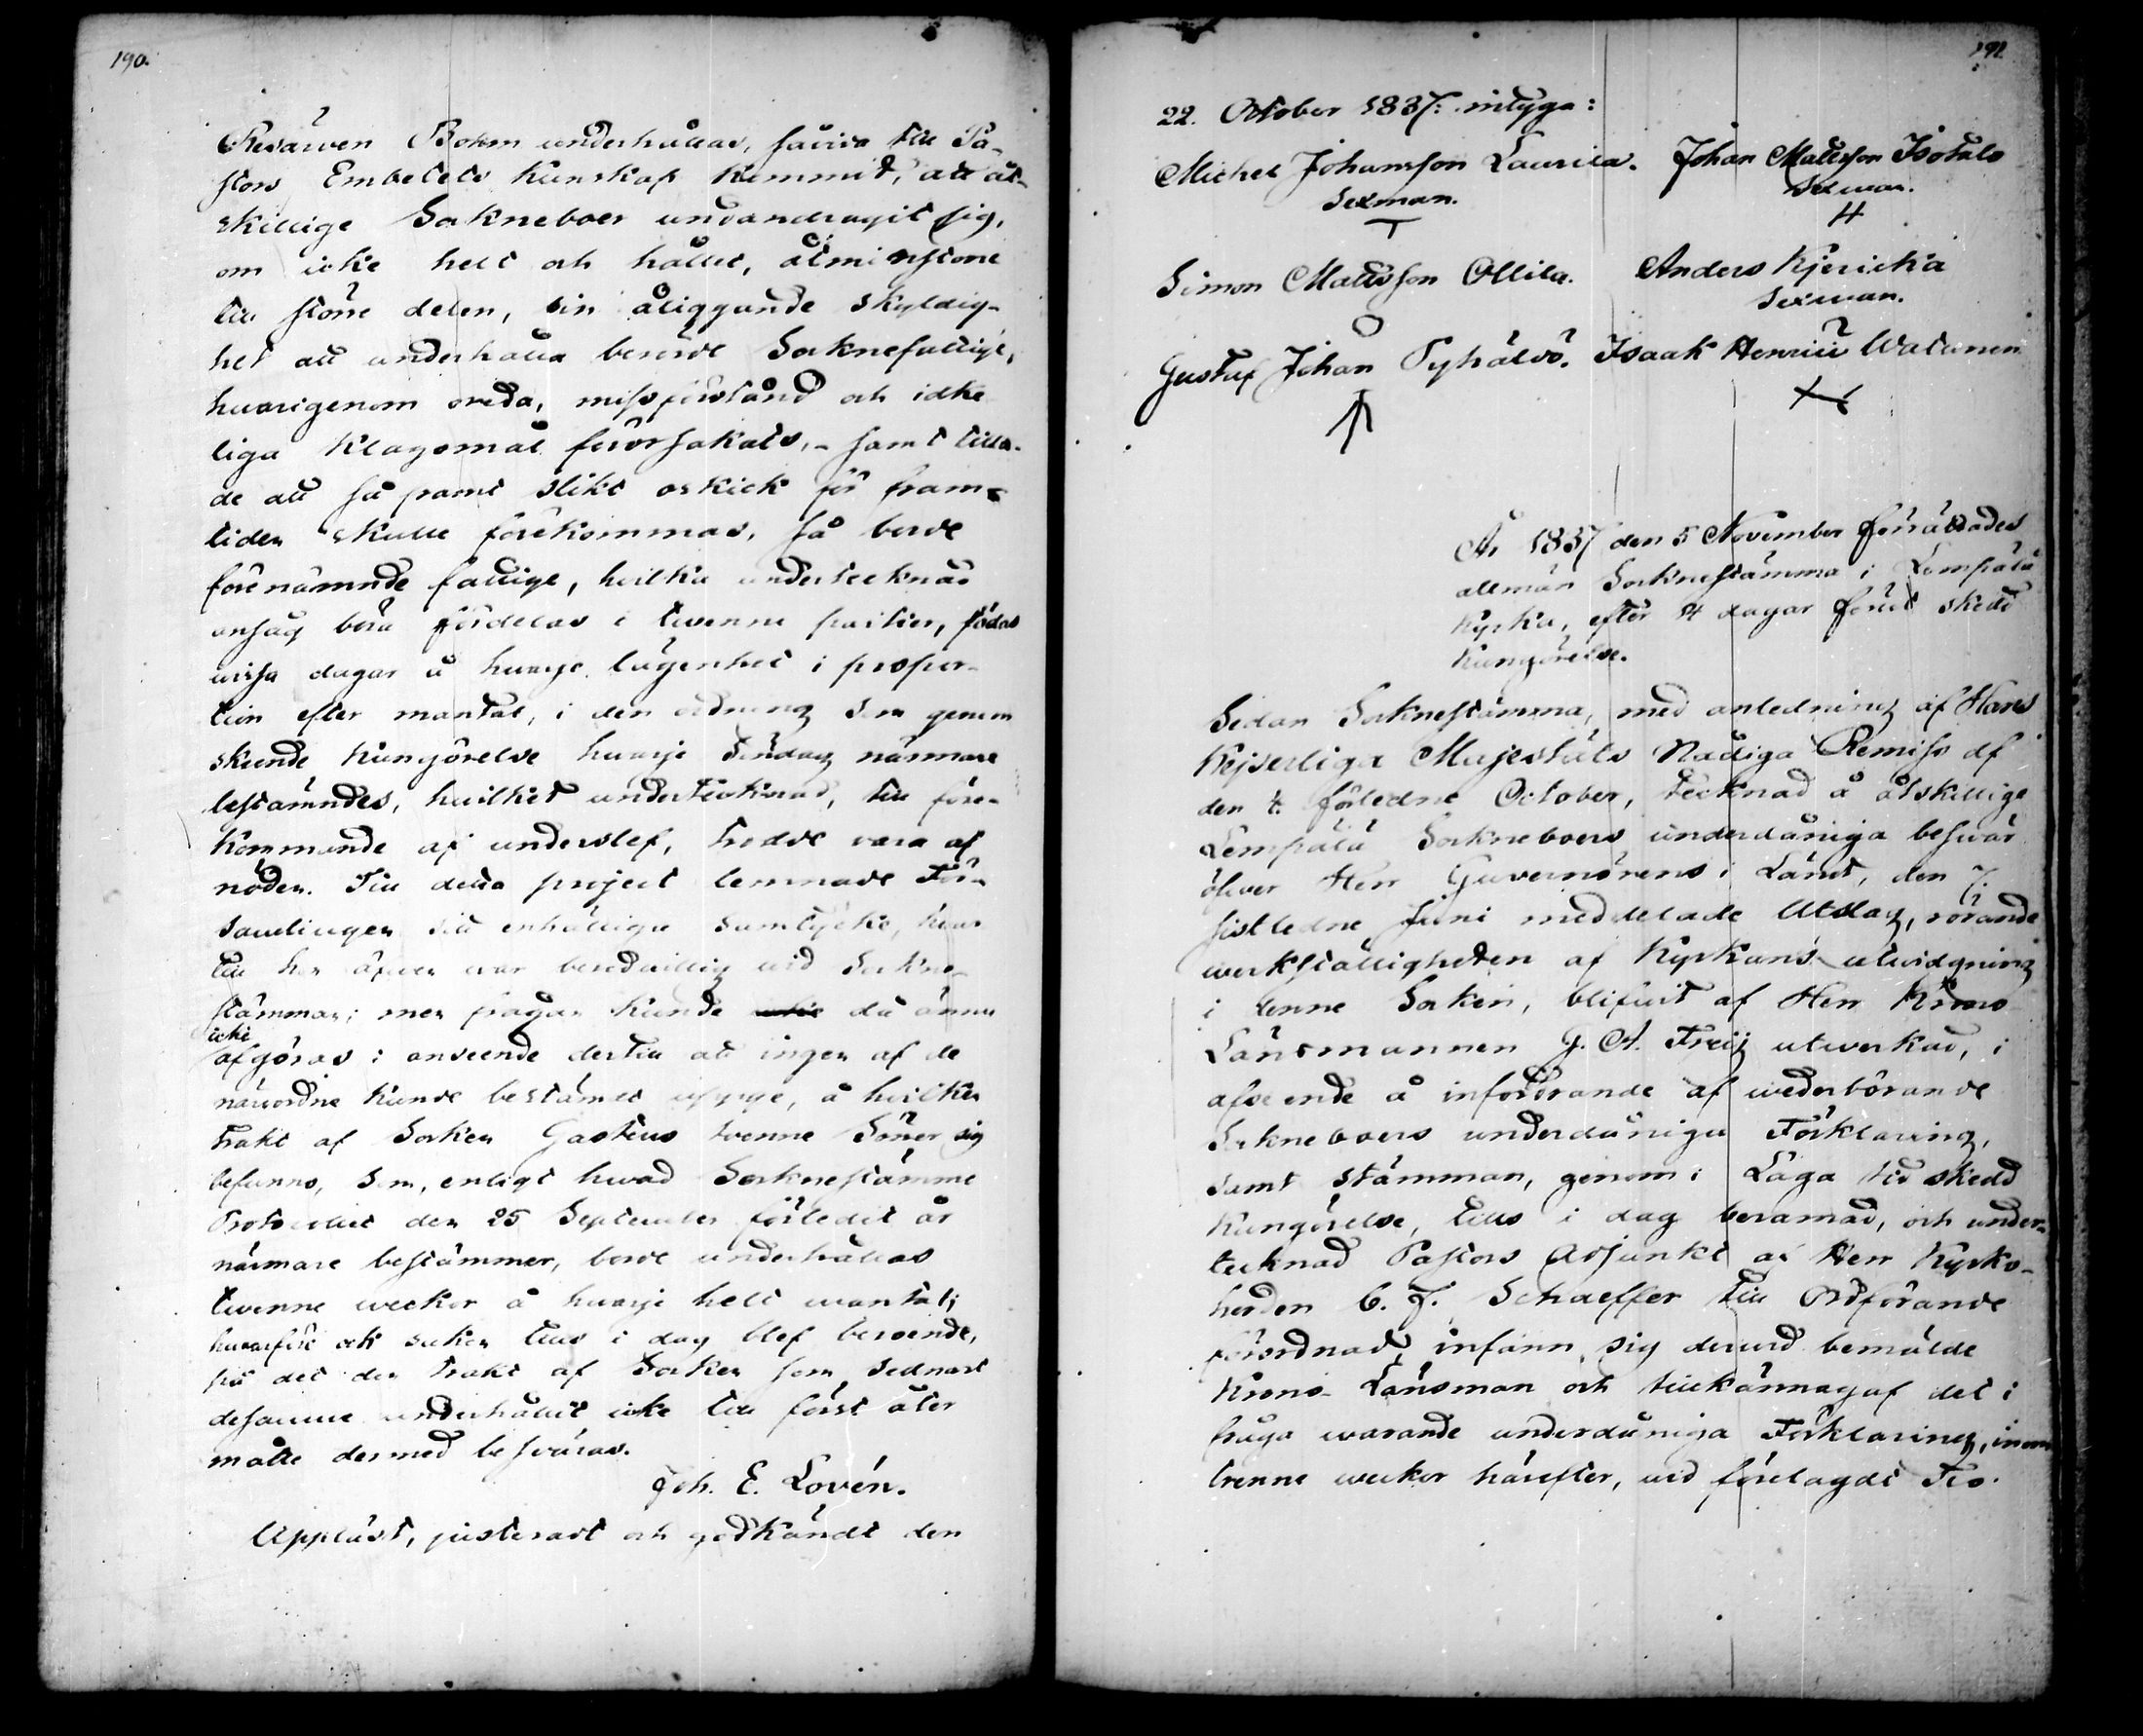 190.
Resarven Bohm underhållas, såsom till Pa-
stors Embetets kunskap kommit, att åt-
skillige Sockneboer undandragit sig,
om icke helt och hållet, åtminstone
till större delen, sin åliggande skyldig-
het att underhålla berörde Socknefattige,
hvarigenom oreda, missförstånd och idke
liga klagomål förorsakats, - samt tilla-
de att så framt slikt oskick för fram-
tiden skulle förekommas, så borde
förenämnde fattige, hvilka undertecknad
ansåg böra fördelas i tvenne partier, födas
vissa dagar å hvarje lägenhet i propor-
tion efter mantal, i den ordning som genom
skeende kungörelse hvarje Söndag närmare
bestämdes, hvilket undertecknad, till före-
kommande af underslef, trodde vara af
nöden. Till detta project lemnade För-
samlingen sitt enhälliga samtycke, hvar
till hon äfven var beredvillig vid Sockne-
stämman; men frågan kunde då ännu
icke
afgöras i anseende dertill att ingen af de
närvordne kunde bestämdt uppge, å hvilken
trakt af Socken Gasteus tvenne Söner sig
befunno, som, enligt hvad Socknestämme
Protocollet den 25 September förledit år
närmare bestämmer, borde underhållas
tvenne veckor å hvarje helt mantal;
hvarföre ock saken tills i dag blef beroende,
på det den trakt af Socken som sednast
desamme underhållit icke till först åter
måtte dermed besväras.
Joh. E. Lovén.
Uppläst, justeradt och godkändt den
191
22. October 1837: intyga:
Michel Johansson Laurila. Johan Mattsson Isotalo
Sexman. Sexman.
Simon Mattsson Ollila. Anders Kjerickä
Sexman.
Gustaf Johan Pyhältö. Isaak Henrici Watanen
År 1837 den 5 November förrättades
allmän Socknestämma i Lempälä
Kyrka, efter 14 dagar förut skedd
Kungörelse.
Sedan Socknestämma, med anledning af Hans
Kejserliga Majestäts Nådiga Remiss af
den förledne October, tecknad å åtskillige
Lempälä Sockneboers underdåniga besvär
öfwer Herr Guvernörens i Länet, den 7
sistledne Juni meddelade Utslag, rörande
werkställigheten af Kyrkans utvidgning
i denne Socken, blifvit af Herr Krono
Länsmannen G. A. Freij utverkad, i
afseende å infordrande af wederbörande
Sockneboers underdåniga Förklaring,
samt stämman, genom i Laga tid skedd
kungörelse, tills i dag beramad, och under-
tecknad Pastors Adjunkt af Herr Kyrko-
herden C. J. Schaeffer till Ordförande
förordnad, infann sig dervid bemälde
Krono Länsman och tillkännagaf det i
fråga warande underdåniga Förklaring, inom
trenne weckor härefter, vid förelagdt Tio